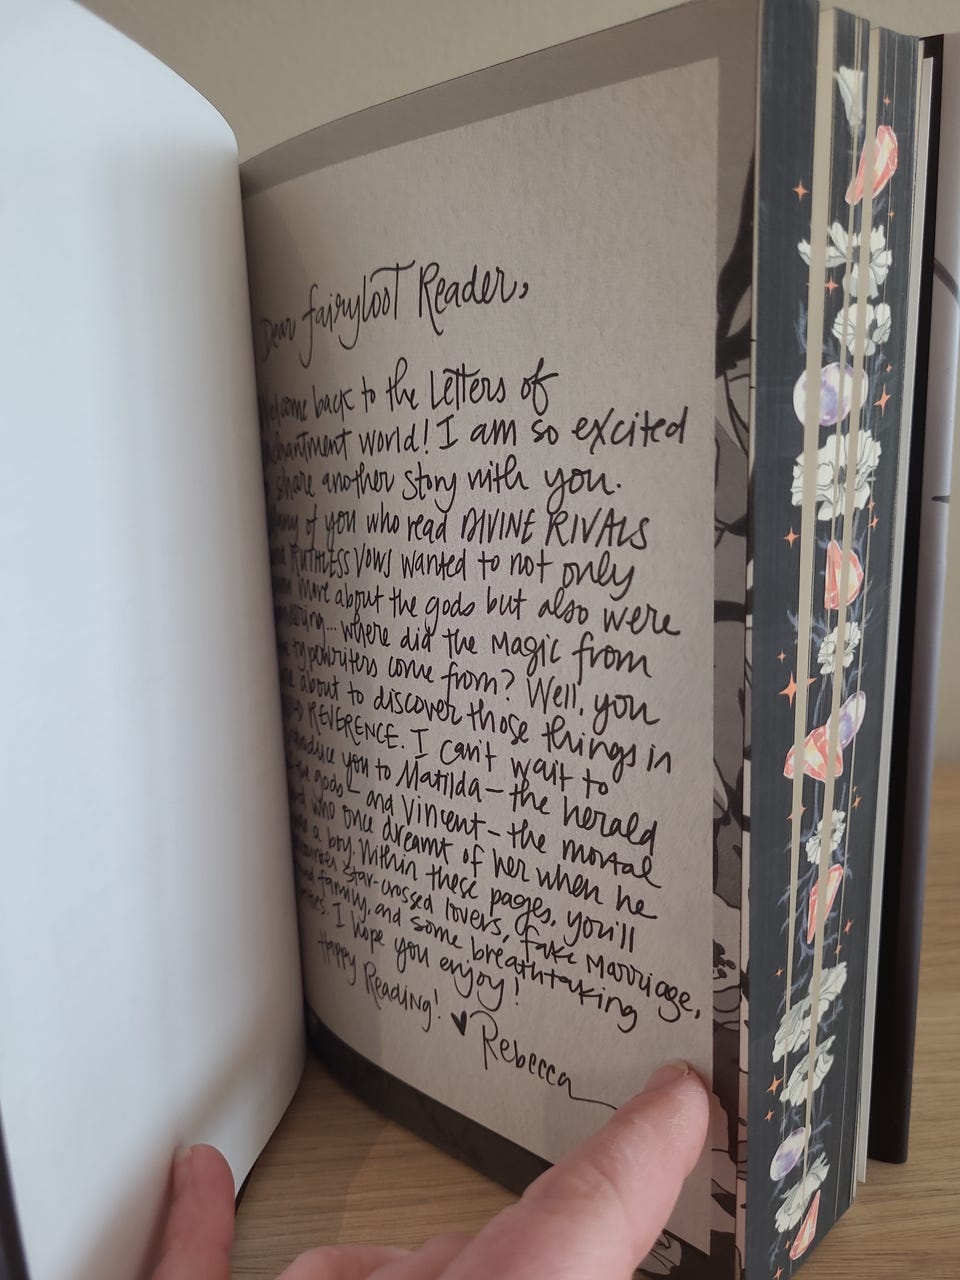 Dear fairyloot Reader,
Welcome back to the Letters of
Enchantment world! I am so excited
share another story with you.
Many of you who read DIVINE RIVALS
and RUTHLESS VOWS wanted to not only
more about the gods but also were
where did the magic from
typewriters come from? Well, you
about to discover those things in
REVERENCE. I can't wait to
introduce you to Matilda—the herald
the gods—and Vincent—the mortal
who once dreamt of her when he
a boy. Within these pages, you'll
encounter star-crossed lovers, fake marriage,
family, and some breathtaking
I hope you enjoy!
Happy Reading!
♥ Rebecca